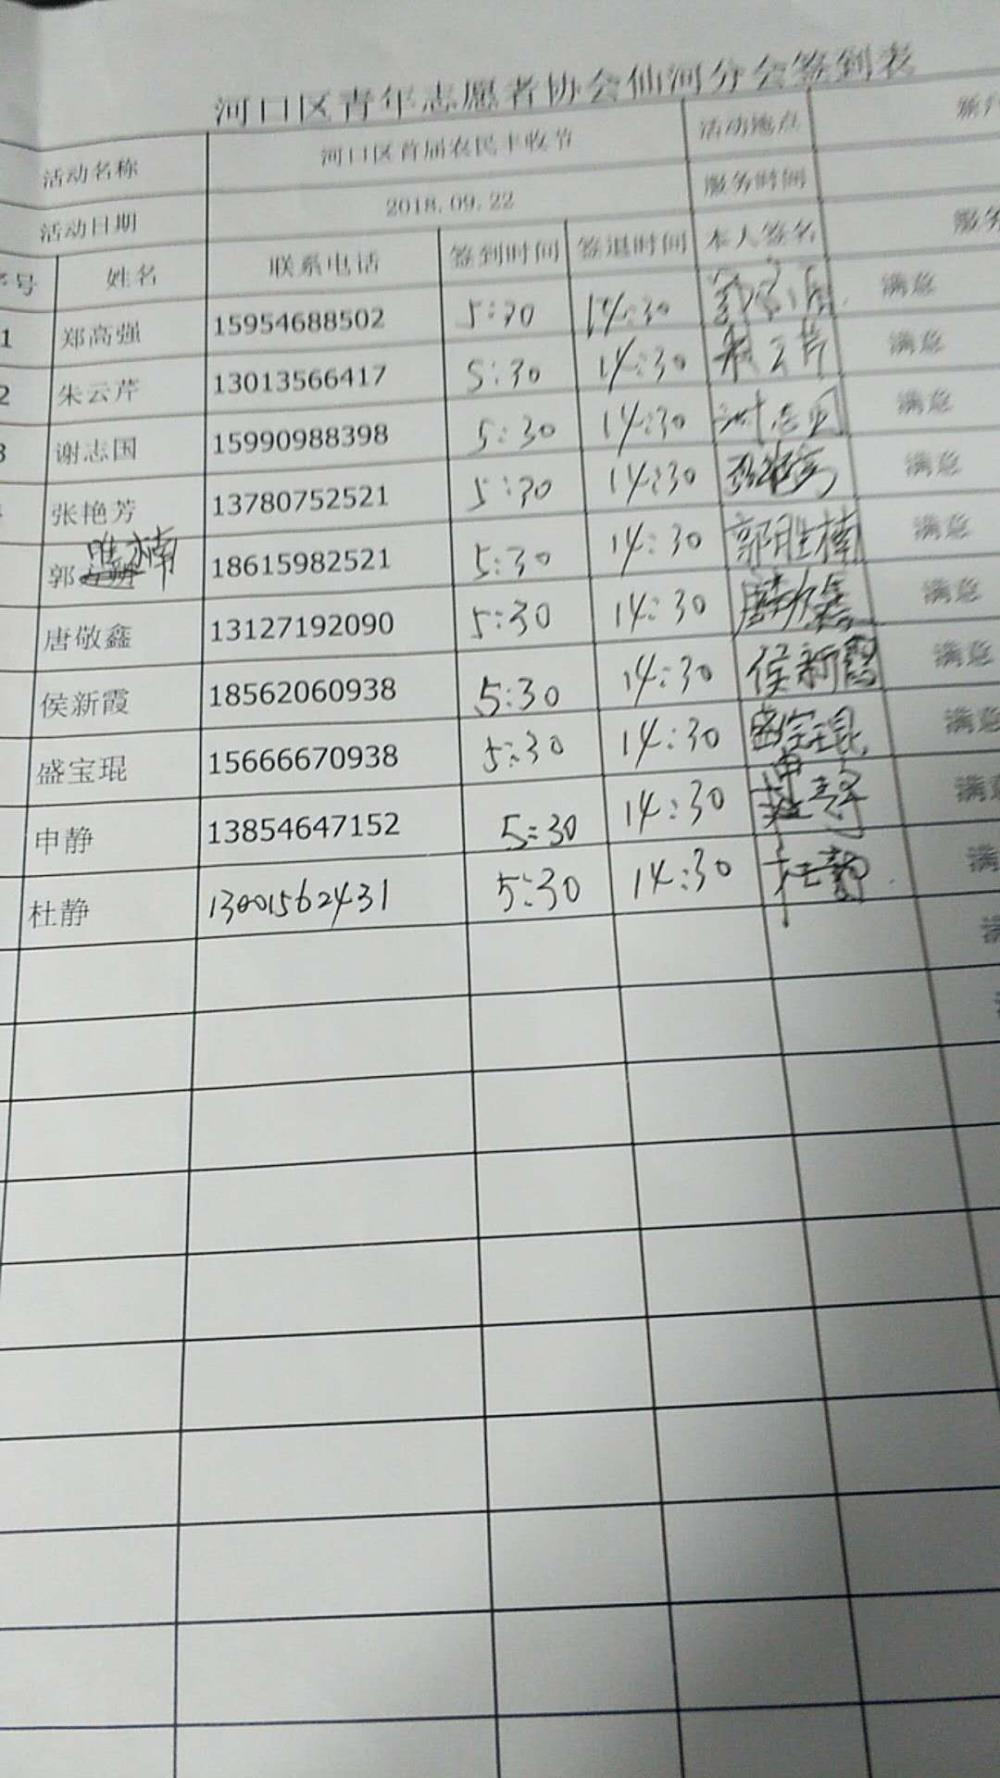 河口区青年志愿者协会仙河分会签到表
活动名称 河口区首届农民丰收节 活动地点
活动日期 2018.09.22 服务时间
序号 姓名 联系电话 签到时间 签退时间 本人签名 服务
1 郑高强 15954688502 5:30 14:30 满意
2 朱云芹 13013566417 5:30 14:30 朱云芹 满意
3 谢志国 15990988398 5:30 14:30 谢志国 满意
张艳芳 13780752521 5:30 14:30 满意
郭胜楠 18615982521 5:30 14:30 郭胜楠 满意
唐敬鑫 13127192090 5:30 14:30 唐敬鑫 满意
侯新霞 18562060938 5:30 14:30 侯新霞 满意
盛宝琨 15666670938 5:30 14:30 盛宝琨 满意
申静 13854647152 5:30 14:30 申静 满意
杜静 13001562431 5:30 14:30 杜静 满
满